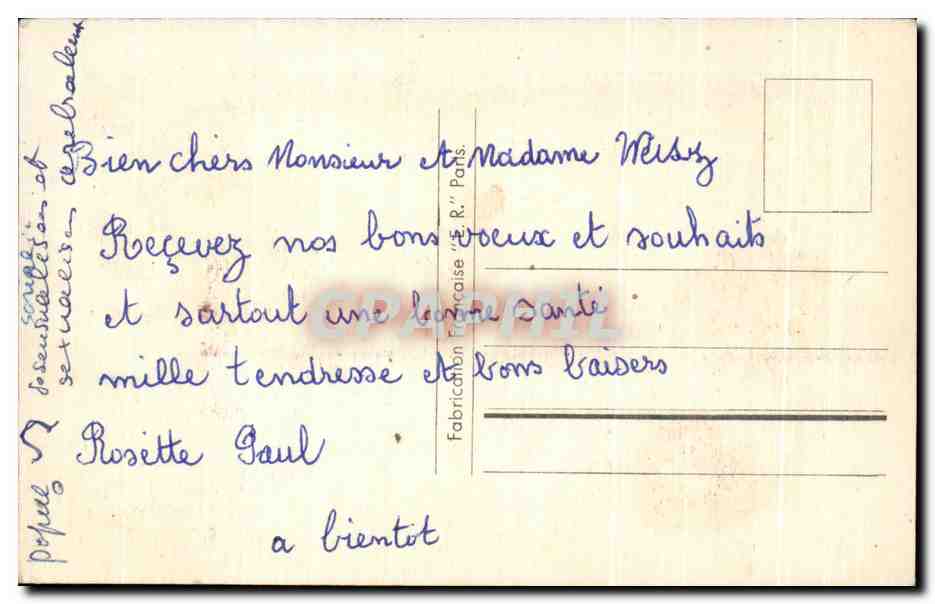 Bien chers Monsieur et Madame Weisz
Reçevez nos bons voeux et souhaits
et surtout une bonne santé
mille tendresse et bons baisers
Rosette Paul
a bientot
Fabrication Française "E.R." Paris.
CPAPHIL
et
sexualiser